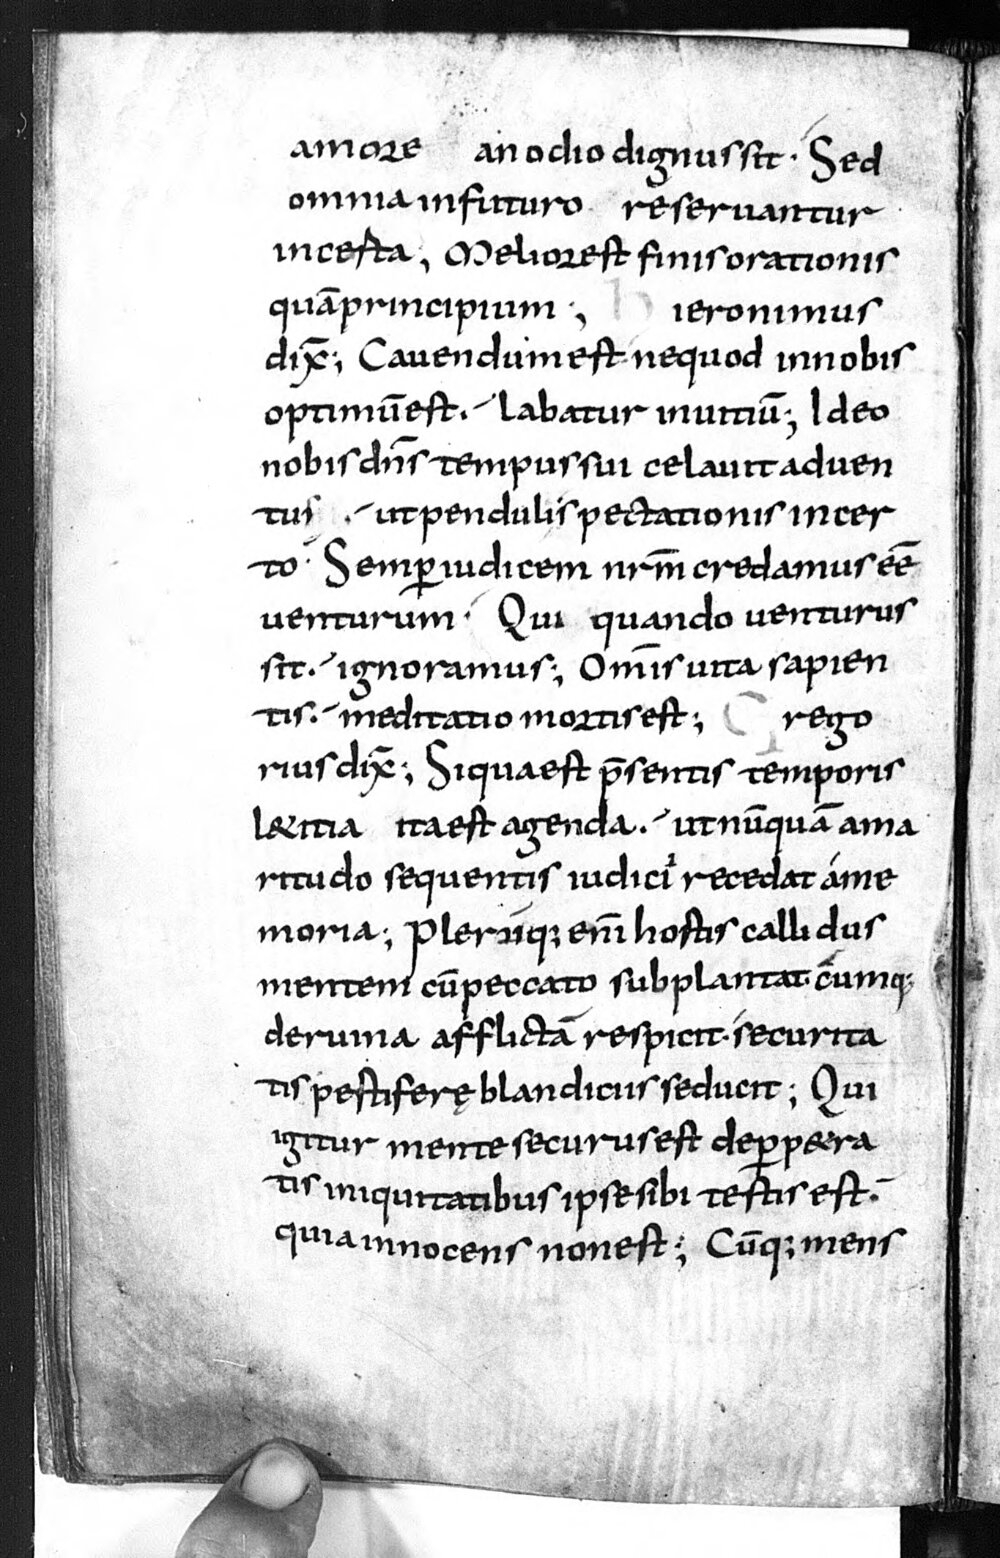 amore an odio dignus sit · Sed
omnia in futuro reseruantur
incerta ; Melior est finis orationis
quā principium ; hieronimus
dix̄ ; Cauendum est ne quod in nobis
optimū est . labatur in uitiū ; Ideo
nobis dn̄s tempus sui celauit aduen
tus . ut penduli spectationis incer
to · Semꝑ iudicem nr̄m credamus ēē
uenturum · Qui quando uenturus
sit . ignoramus ; Om̄is uita sapien
tis . meditatio mortis est ; Grego
rius dix̄ ; Siqua est p̄sentis temporis
l&itia ita est agenda . ut nū̄quā ama
ritudo sequentis iudicii recedat á me
moria ; Plerūq; enī hostis callidus
mentem cū peccato subplantat · cumq;
de ruina afflictā respicit · securita
tis pestiferę blandiciis seducit ; Qui
igitur mente securus est de ꝑp&ra
tis iniquitatibus ipse sibi testis est .
quia innocens non est ; Cūq; mens